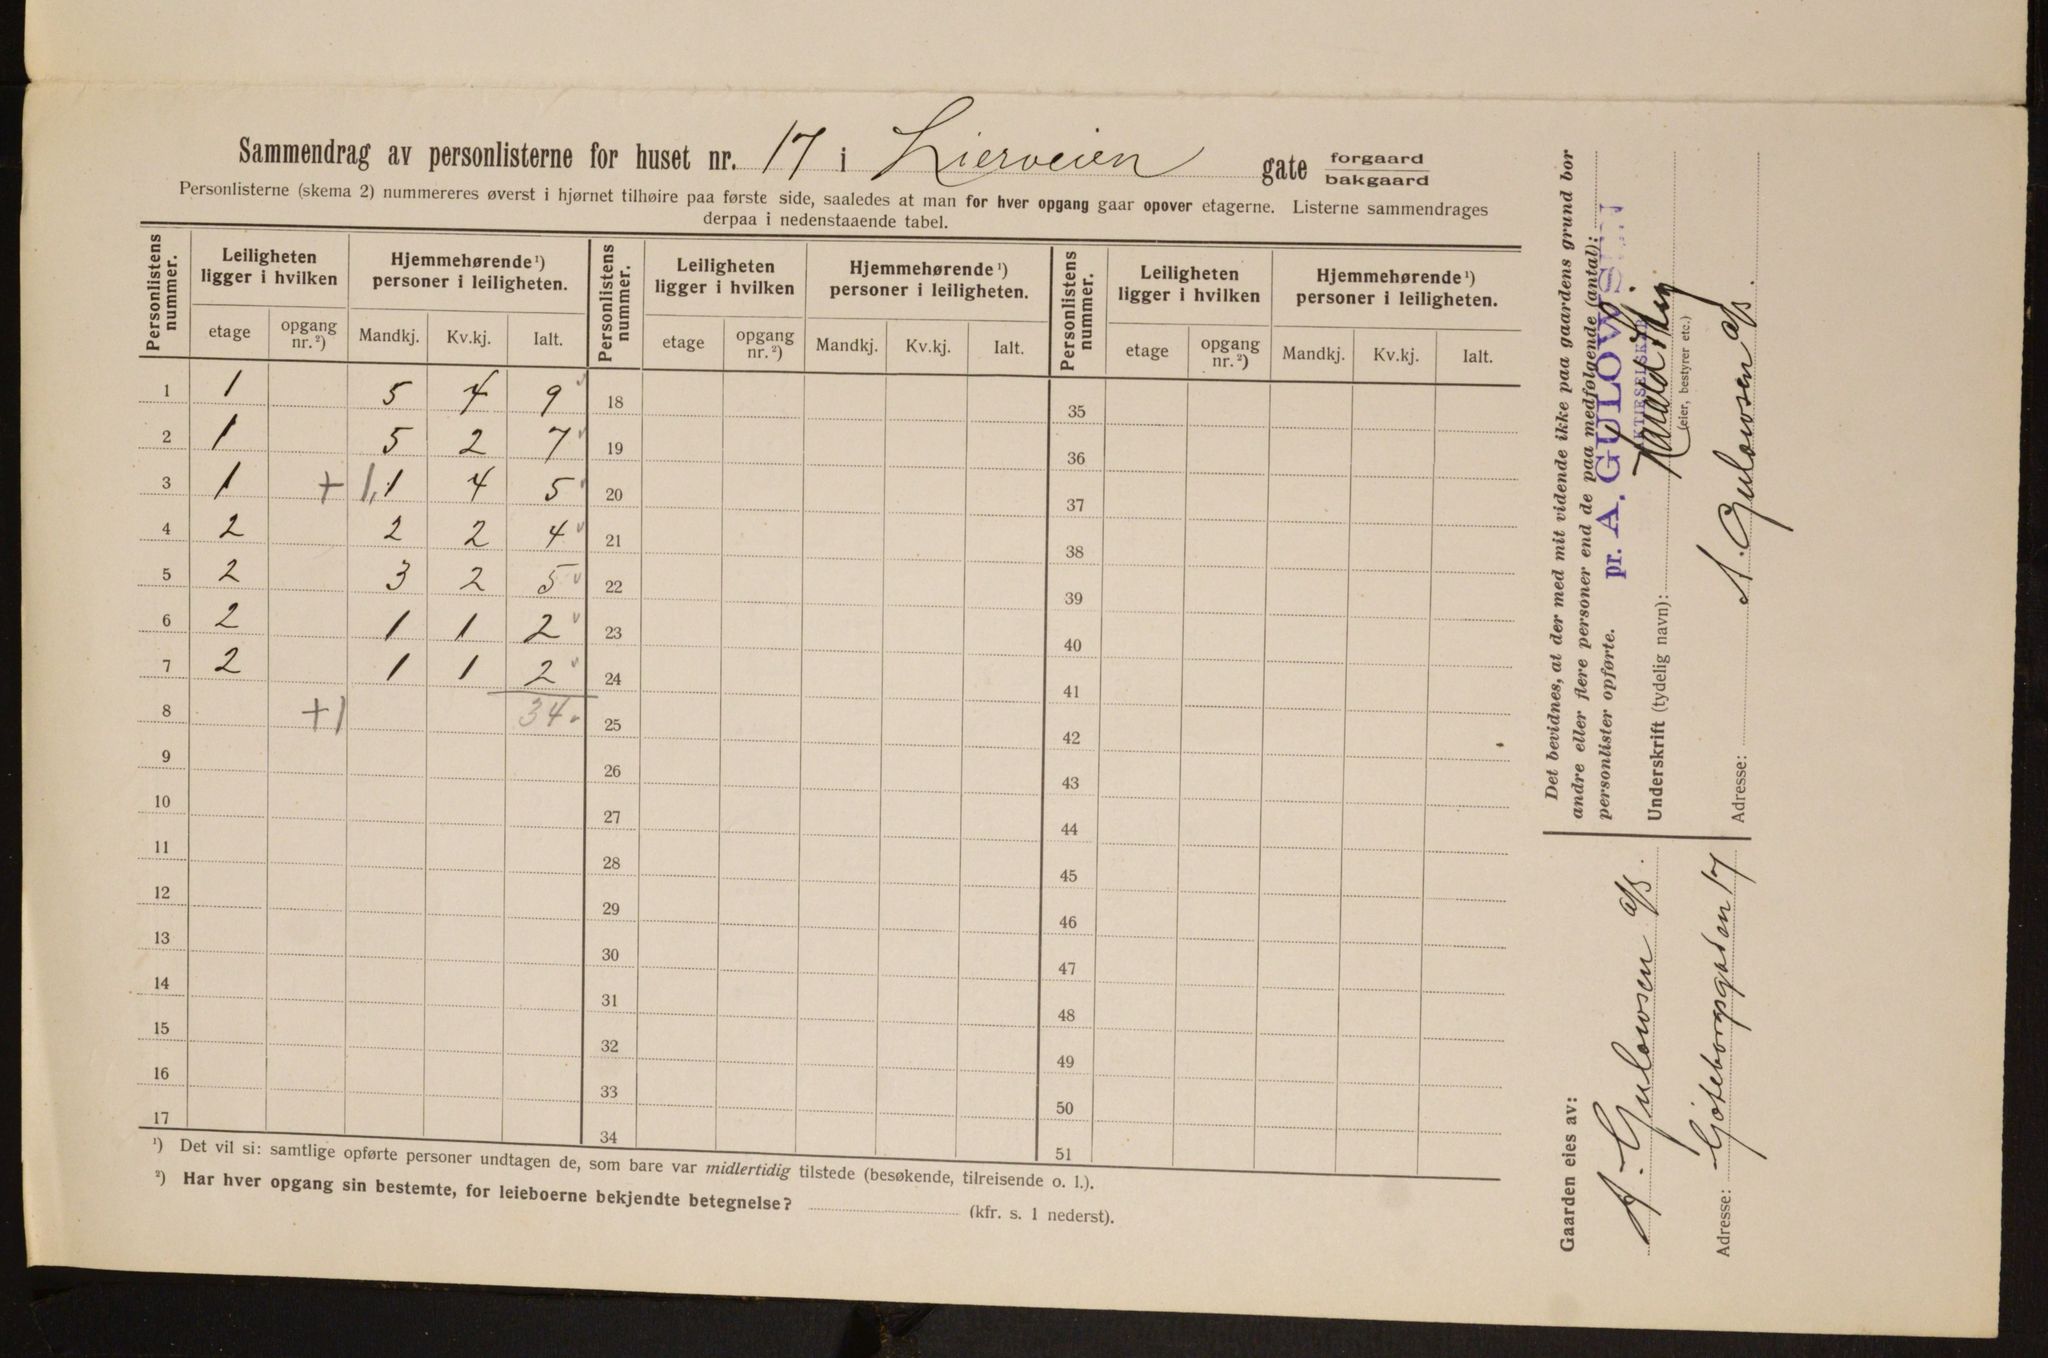 Sammendrag av personlisterne for huset nr. 17 i Lierveien gate forgaard bakgaard
Personlisterne (skema 2) nummereres øverst i hjørnet tilhøire paa første side, saaledes at man for hver opgang gaar opover etagerne. Listerne sammendrages
derpaa i nedenstaaende tabel.
Personlistens nummer. Leiligheten ligger i hvilken Hjemmehørende ¹) personer i leiligheten. Personlistens nummer. Leiligheten ligger i hvilken Hjemmehørende ¹) personer i leiligheten. Personlistens nummer. Leiligheten ligger i hvilken Hjemmehørende ¹) personer i leiligheten.
etage opgang nr. ²) Mandkj. Kv.kj. Ialt. etage opgang nr. ²) Mandkj. Kv.kj. Ialt. etage opgang nr. ²) Mandkj. Kv.kj. Ialt.
1 1 5 4 9 18 35
2 1 5 2 7 19 36
3 1 + 1, 1 4 5 20 37
4 2 2 2 4 21 38
5 2 3 2 5 22 39
6 2 1 1 2 23 40
7 2 1 1 2 24 41
8 +1 34 25 42
9 26 43
10 27 44
11 28 45
12 29 46
13 30 47
14 31 48
15 32 49
16 33 50
17 34 51
¹) Det vil si: samtlige opførte personer undtagen de, som bare var midlertidig tilstede (besøkende, tilreisende o. l.).
²) Har hver opgang sin bestemte, for leieboerne bekjendte betegnelse? (kfr. s. 1 nederst).
Det bevidnes, at der med mit vidende ikke paa gaardens grund bor
andre eller flere personer end de paa medfølgende (antal):
personlister opførte.
pr. A. GULOWSEN
AKTIESELSKAP
Underskrift (tydelig navn): Harald
(eier, bestyrer etc.)
Adresse: A. Gulowsen a/s.
Gaarden eies av:
A. Gulowsen a/s.
Adresse: Göteborggaden 17